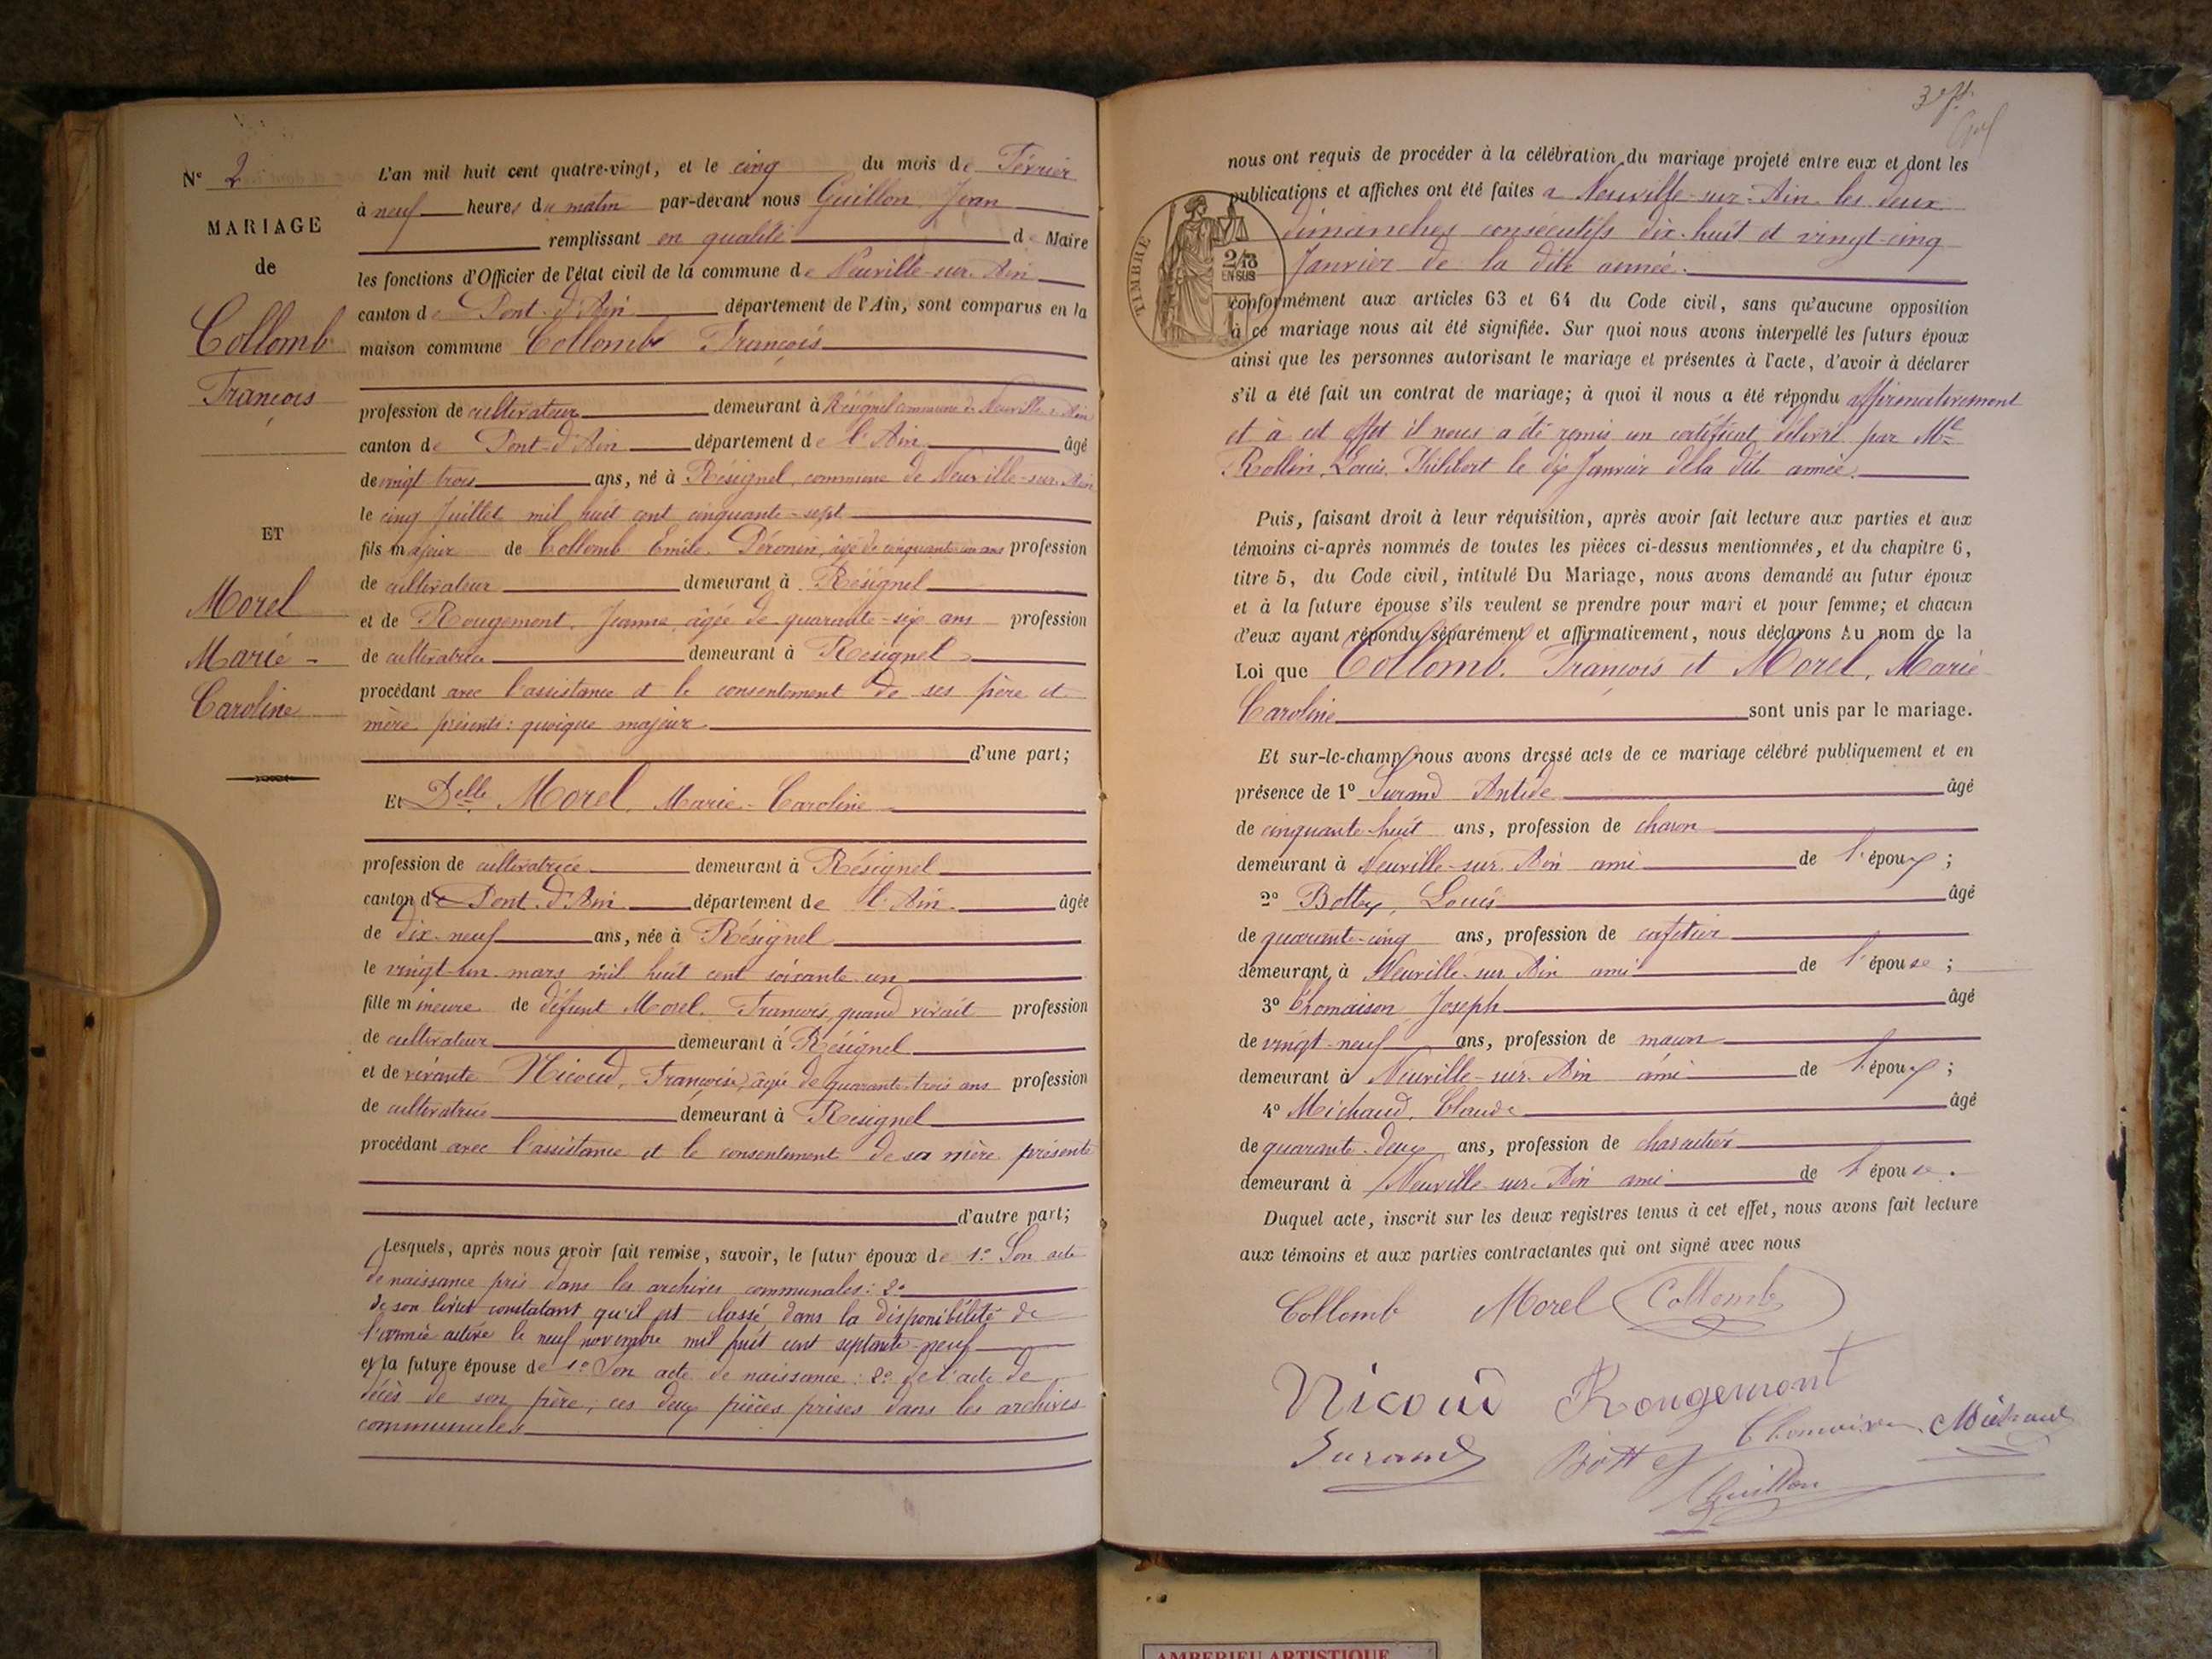 N° 2
MARIAGE
de
Collomb
François
ET
Morel
Marie -
Caroline
L'an mil huit cent quatre-vingt, et le cinq du mois de Février
à neuf heures du matin par-devant nous Guillon Jean
remplissant en qualité de Maire
les fonctions d'Officier de l'état civil de la commune de Neuville-sur-Ain
canton de Pont-d'Ain département de l'Ain, sont comparus en la
maison commune Collomb François
profession de cultivateur demeurant à Résignel commune de Neuville-s-Ain
canton de Pont-d'Ain département de l'Ain âgé
de vingt trois ans, né à Résignel, commune de Neuville-sur-Ain
le cinq Juillet mil huit cent cinquante-sept
fils majeur de Collomb Emile, Péronin, âgé de cinquante un ans profession
de cultivateur demeurant à Résignel
et de Rougemont, Jeanne, âgée de quarante-six ans profession
de cultivatrice demeurant à Résignel
procédant avec l'assistance et le consentement de ses père et
mère présents: quoique majeur
d'une part;
Et Delle Morel, Marie-Caroline
profession de cultivatrice demeurant à Résignel
canton de Pont-d'Ain département de l'Ain âgée
de dix-neuf ans, née à Résignel
le vingt-un mars mil huit cent soixante un
fille mineure de défunt Morel, François, quand vivait profession
de cultivateur demeurant à Résignel
et de vivante Nicoud, Françoise, âgée de quarante-trois ans profession
de cultivatrice demeurant à Résignel
procédant avec l'assistance et le consentement de sa mère présente
d'autre part;
Lesquels, après nous avoir fait remise, savoir, le futur époux de 1° Son acte
de naissance pris dans les archives communales: 2°
de son livret constatant qu'il est classé dans la disponibilité de
l'armée active le neuf novembre mil huit cent septante-neuf
et la future épouse de 1° Son acte de naissance: 2° de l'acte de
décès de son père, ces deux pièces prises dans les archives
communales
nous ont requis de procéder à la célébration du mariage projeté entre eux et dont les
publications et affiches ont été faites à Neuville-sur-Ain les deux
dimanches consécutifs dix-huit et vingt-cinq
Janvier de la dite année.
TIMBRE
2/10
EN SUS
conformément aux articles 63 et 64 du Code civil, sans qu'aucune opposition
à ce mariage nous ait été signifiée. Sur quoi nous avons interpellé les futurs époux
ainsi que les personnes autorisant le mariage et présentes à l'acte, d'avoir à déclarer
s'il a été fait un contrat de mariage; à quoi il nous a été répondu affirmativement
et à cet effet il nous a été remis un certificat délivré par Me
Rollin, Louis, Philibert le dix Janvier de la dite année.
Puis, faisant droit à leur réquisition, après avoir fait lecture aux parties et aux
témoins ci-après nommés de toutes les pièces ci-dessus mentionnées, et du chapitre 6,
titre 5, du Code civil, intitulé Du Mariage, nous avons demandé au futur époux
et à la future épouse s'ils veulent se prendre pour mari et pour femme; et chacun
d'eux ayant répondu séparément et affirmativement, nous déclarons Au nom de la
Loi que Collomb, François et Morel, Marie
Caroline sont unis par le mariage.
Et sur-le-champ nous avons dressé acte de ce mariage célébré publiquement et en
présence de 1° Surand Antide âgé
de cinquante-huit ans, profession de charon
demeurant à Neuville-sur-Ain ami de l'époux;
2° Bottex, Louis âgé
de quarante-cinq ans, profession de cafetier
demeurant à Neuville-sur-Ain ami de l'épouse;
3° Chomaison Joseph âgé
de vingt-neuf ans, profession de maçon
demeurant à Neuville-sur-Ain ami de l'époux;
4° Michaud, Claude âgé
de quarante-deux ans, profession de charcutier
demeurant à Neuville-sur-Ain ami de l'épouse.
Duquel acte, inscrit sur les deux registres tenus à cet effet, nous avons fait lecture
aux témoins et aux parties contractantes qui ont signé avec nous
Collomb Morel Collomb
Nicoud Rougemont
Surand Bottex Chomaison Michaud
Guillon
AMBERIEU ARTISTIQUE